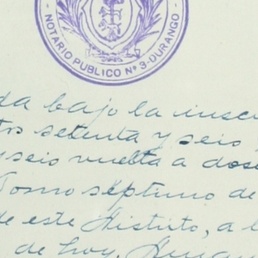 NOTARIO PUBLICO Nº 3-DURANGO
da bajo la inscr
tos setenta y seis
y seis vuelta a dosc
Tomo septimo de
de este Distrito, a l
de hoy.